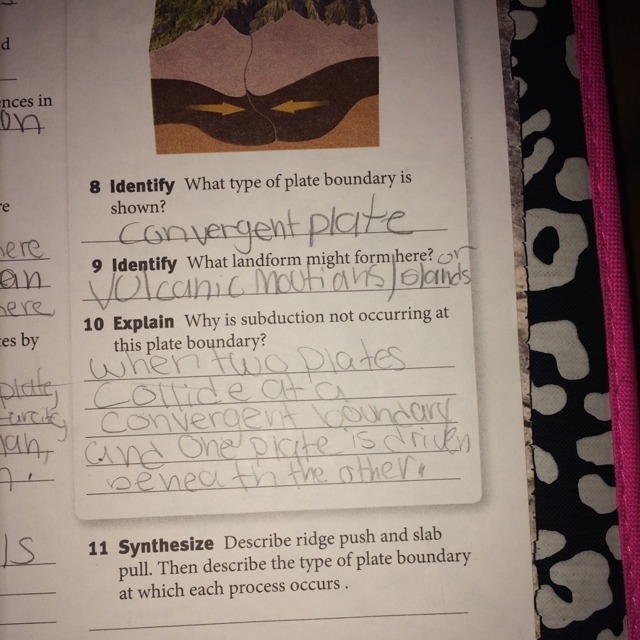 d
ences in
on
re
here
an
here
es by
plate,
lan,
n.
ls
8 Identify What type of plate boundary is
shown?
convergent plate
9 Identify What landform might form here? or
Volcanic moutians/islands
10 Explain Why is subduction not occurring at
this plate boundary?
when two plates
collide at a
convergent boundary
and one plate is driven
beneath the other.
11 Synthesize Describe ridge push and slab
pull. Then describe the type of plate boundary
at which each process occurs .